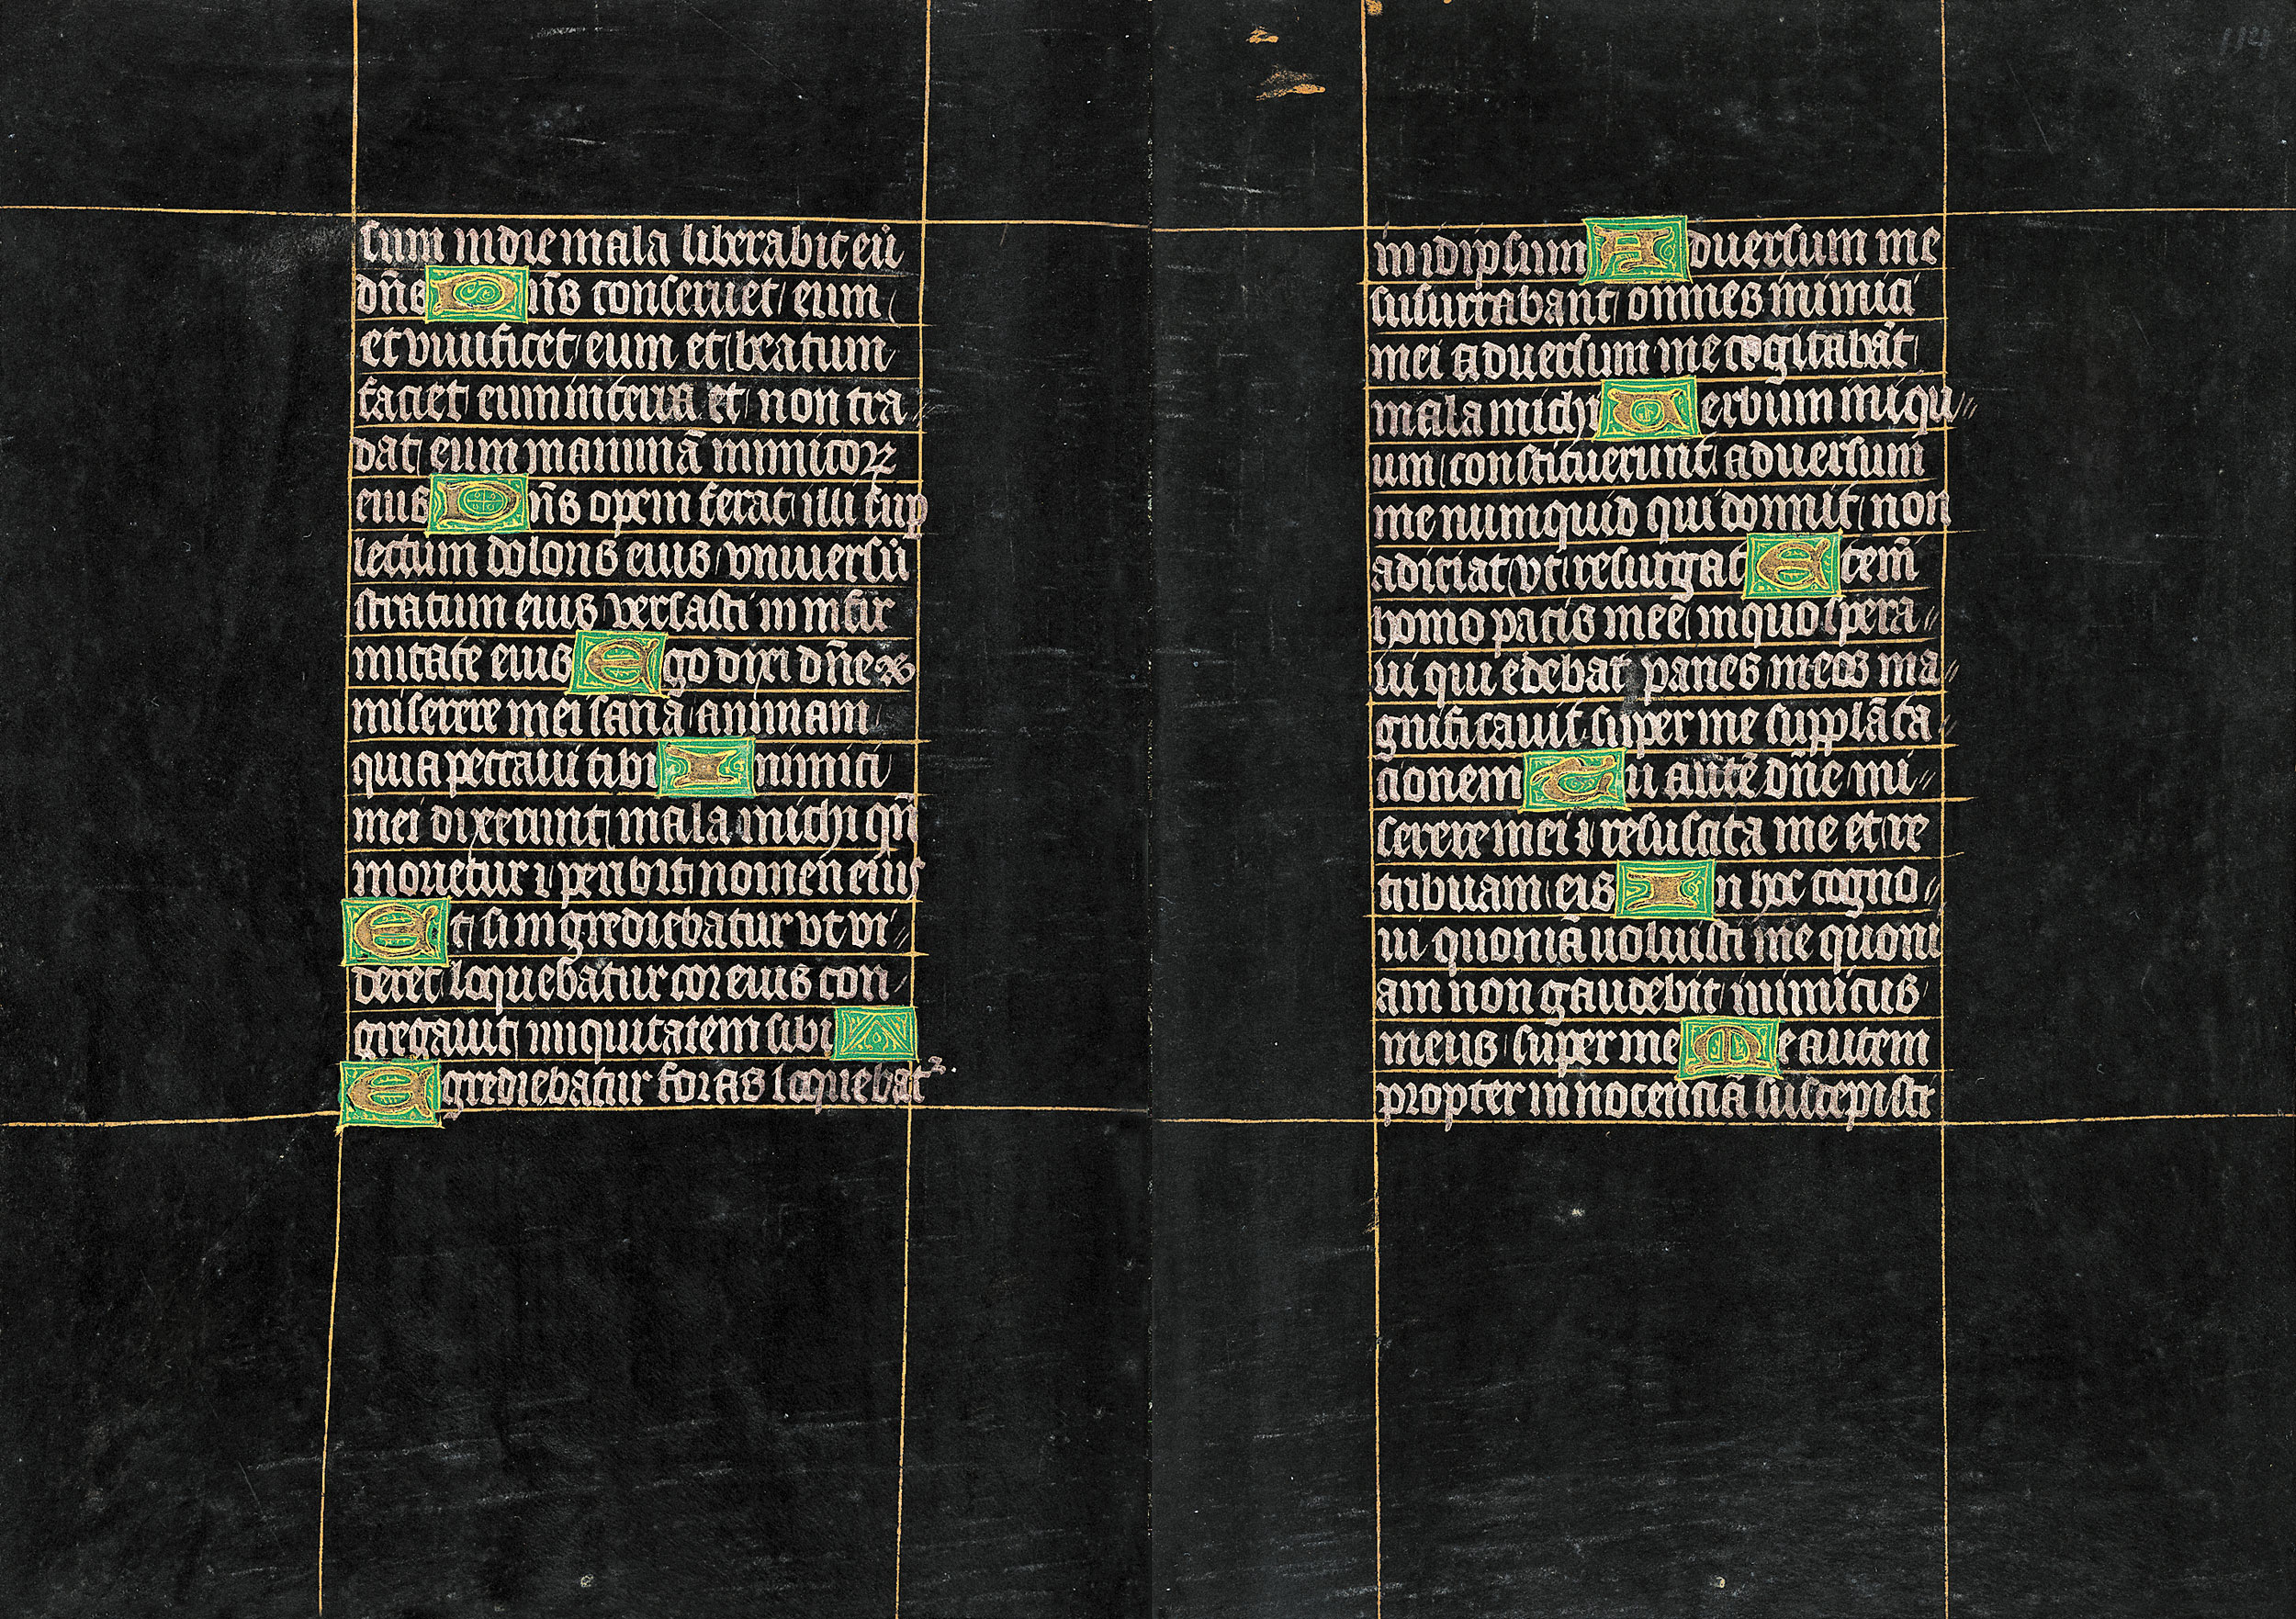 sum in die mala liberabit eū
dn̄s Dn̄s conseruet eum
et viuificet eum et beatum
faciet eum in terra et non tra
dat eum in animā inimicoꝝ
eius Dn̄s opem ferat illi sup
lectum doloris eius vniuersū
stratum eius versasti in infir
mitate eius Ego dixi dn̄e
miserere mei sana animam
quia peccaui tibi Inimici
mei dixerunt mala michi qn̄
morietur ⁊ peribit nomen eius
Et si ingrediebatur vt vi
deret loquebatur cor eius con
gregauit iniquitatem sibi
Egrediebatur foras loquebat᷑
in idipsum Aduersum me
susurrabant omnes inimici
mei aduersum me cogitabāt
mala michi Uerbum iniqu
um constituerunt aduersum
me numquid qui dormit non
adiciat vt resurgat Etem̄
homo pacis mee in quo spera
ui qui edebat panes meos ma
gnificauit super me supplāta
cionem Tu autē dn̄e mi
serere mei ⁊ resuscita me et re
tribuam eis In hoc cogno
ui quoniā uoluisti me quoni
am non gaudebit inimicus
meus super me Me autem
propter innocenciā suscepisti